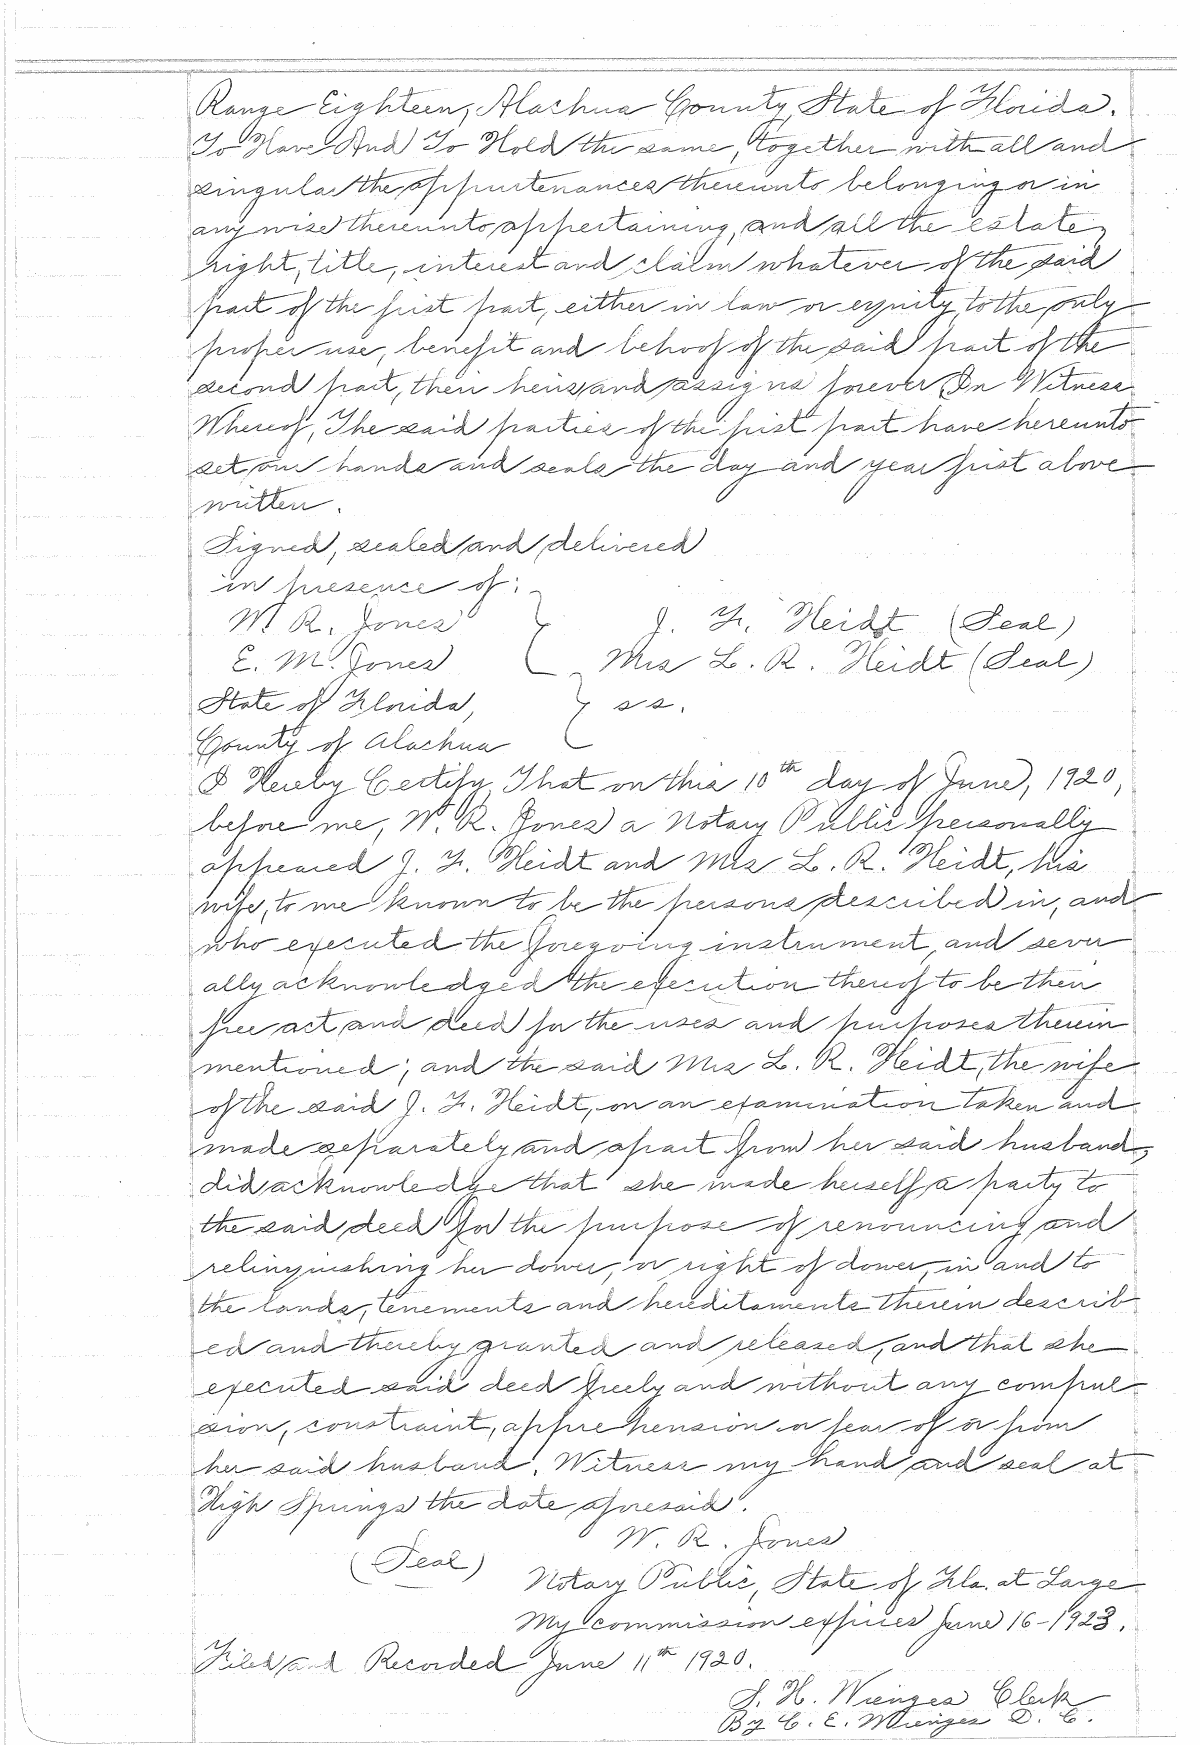 Range Eighteen, Alachua County, State of Florida.
To Have And To Hold the same, together with all and
singular the appurtenances thereunto belonging or in
any wise thereunto appertaining, and all the estate,
right, title, interest and claim whatever of the said
part of the first part, either in law or equity, to the only
proper use, benefit and behoof of the said part of the
second part, their heirs and assigns forever. In Witness
Whereof, The said parties of the first part have hereunto
set our hands and seals the day and year first above
written.
Signed, sealed and delivered
in presence of:
W. R. Jones } J. F. Heidt (Seal)
E. M. Jones } Mrs L. R. Heidt (Seal)
State of Florida, } ss.
County of Alachua
I Hereby Certify, That on this 10th day of June, 1920,
before me, W. R. Jones a Notary Public personally
appeared J. F. Heidt and Mrs L. R. Heidt, his
wife, to me known to be the persons described in, and
who executed the foregoing instrument, and sever
ally acknowledged the execution thereof to be their
free act and deed for the uses and purposes therein
mentioned; and the said Mrs L. R. Heidt, the wife
of the said J. F. Heidt, on an examination taken and
made separately and apart from her said husband,
did acknowledge that she made herself a party to
the said deed for the purpose of renouncing and
relinquishing her dower, or right of dower, in and to
the lands, tenements and hereditaments therein describ
ed and thereby granted and released, and that she
executed said deed freely and without any compul
sion, constraint, apprehension or fear of or from
her said husband. Witness my hand and seal at
High Springs the date aforesaid.
W. R. Jones
(Seal)
Notary Public, State of Fla. at Large
My commission expires June 16-1923.
Filed and Recorded June 11th 1920.
S. H. Wienges Clerk
By C. E. Wienges D. C.